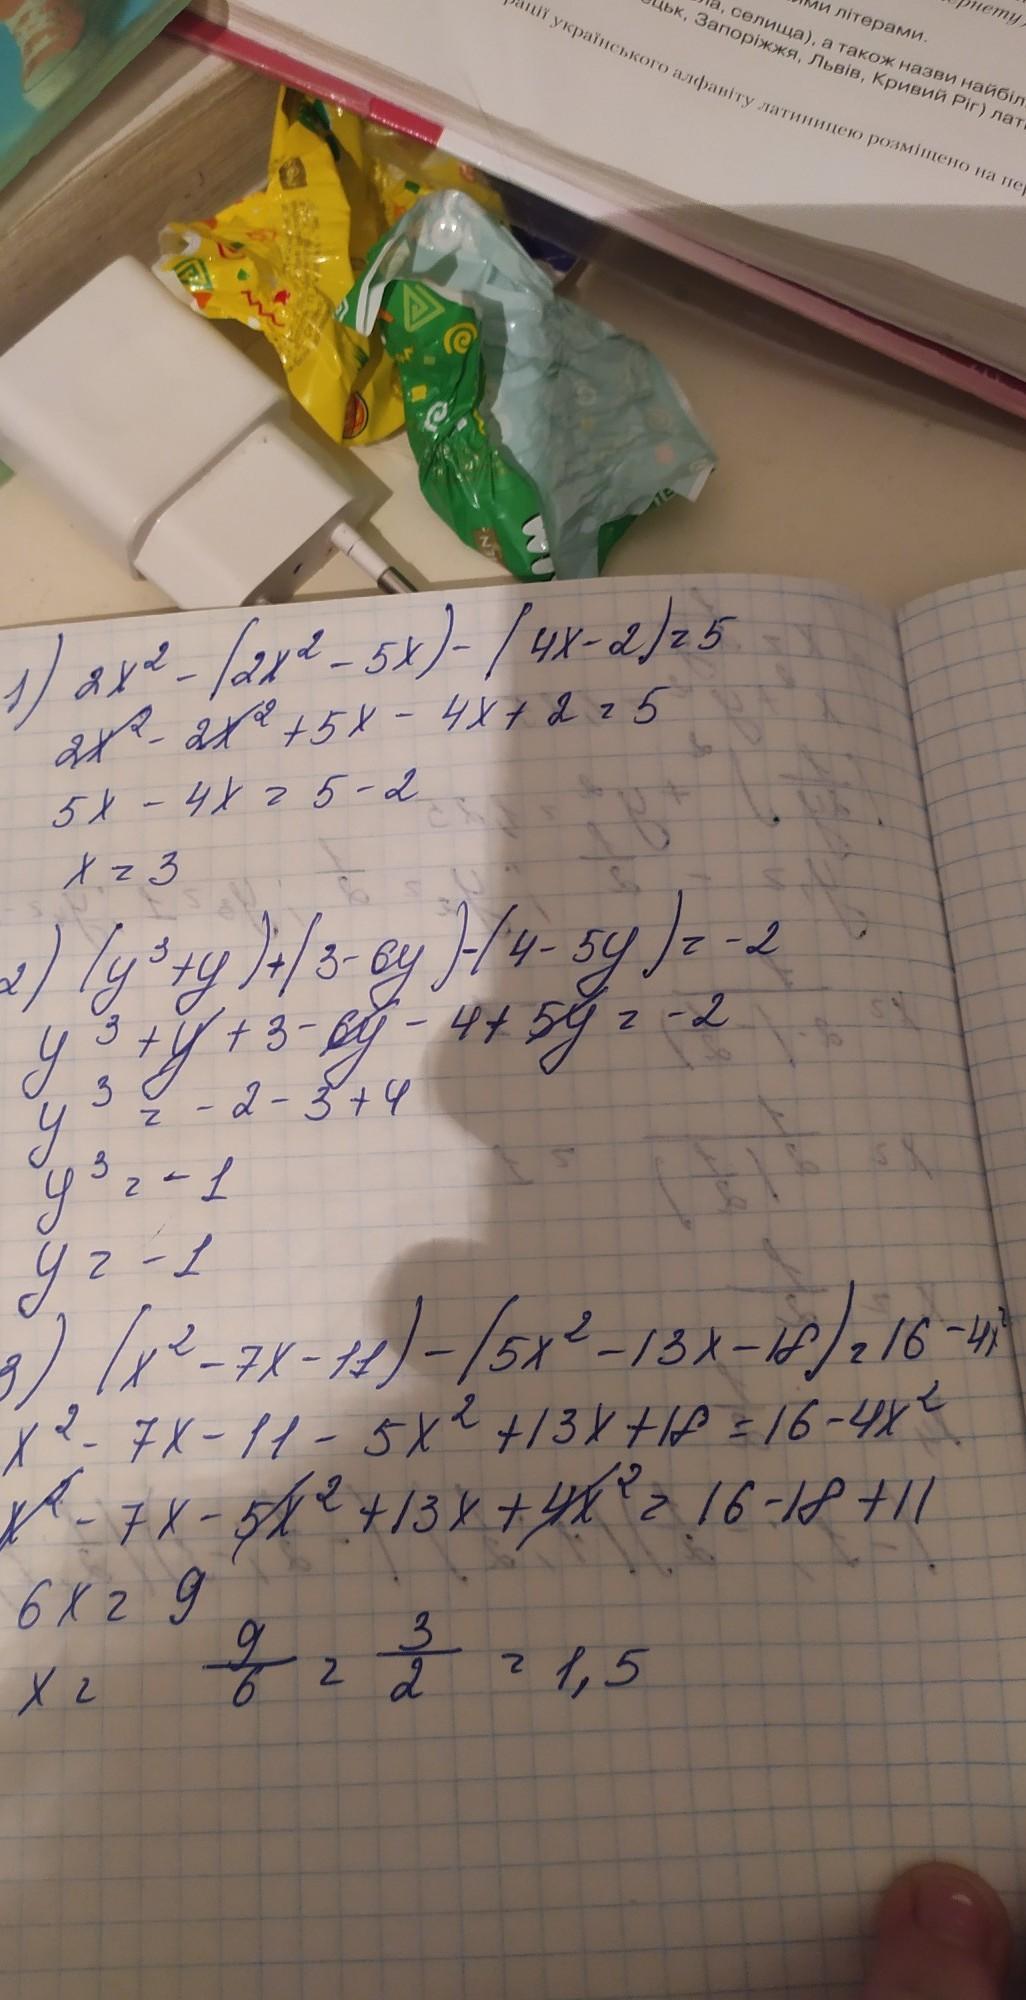 ими літерами.
ла, селища), а також назви найбіл
цьк, Запоріжжя, Львів, Кривий Ріг) лати
рації українського алфавіту латиницею розміщено на пер
1) 2x² - (2x² - 5x) - (4x - 2) = 5
2x² - 2x² + 5x - 4x + 2 = 5
5x - 4x = 5 - 2
x = 3
2) (y³ + y) + (3 - 6y) - (4 - 5y) = -2
y³ + y + 3 - 6y - 4 + 5y = -2
y³ = -2 - 3 + 4
y³ = -1
y = -1
3) (x² - 7x - 11) - (5x² - 13x - 18) = 16 - 4x²
x² - 7x - 11 - 5x² + 13x + 18 = 16 - 4x²
x² - 7x - 5x² + 13x + 4x² = 16 - 18 + 11
6x = 9
x = 9/6 = 3/2 = 1,5